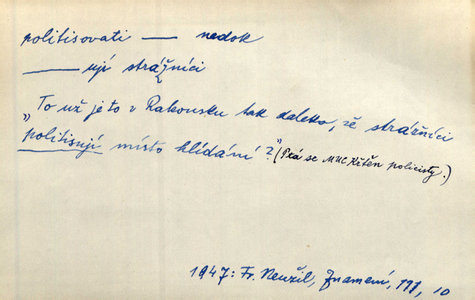 politisovati — nedok
— ují strážníci
„To už je to v Rakousku tak daleko, že strážníci
politisují místo hlídání?" (Ptá se MUC Křtěn policisty.)
1947: Fr. Neužil, Znamení, 111, 10